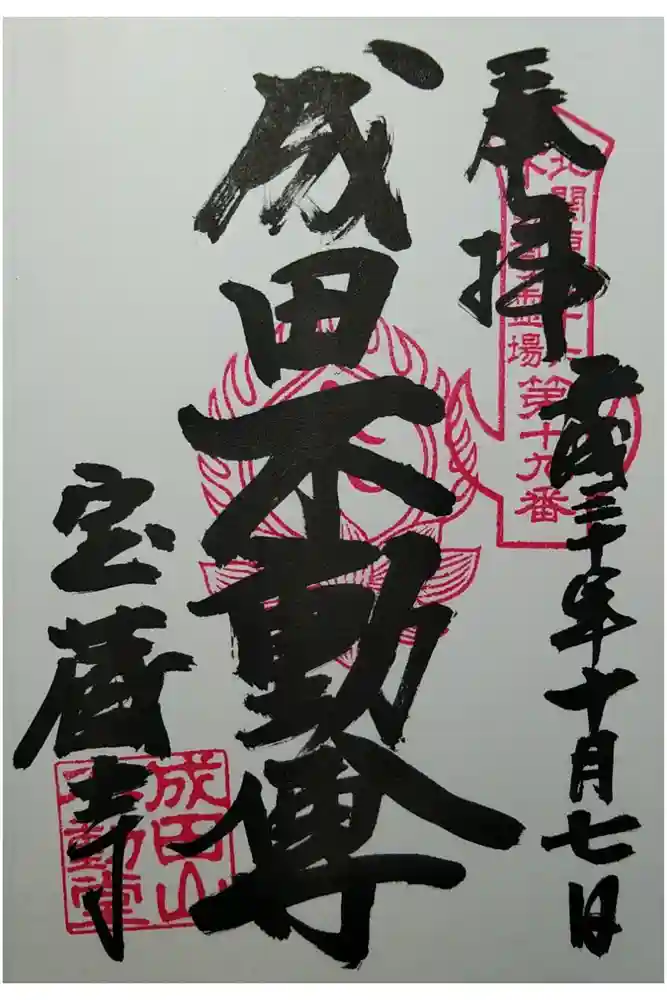 奉拝
平成三十年十月七日
北関東
霊場
第十九番
成田不動尊
宝蔵寺
成田山
不動堂